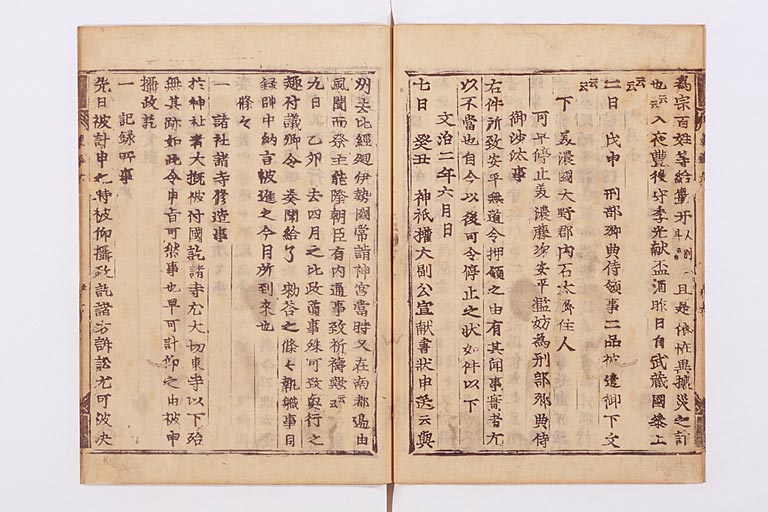 為宗百姓等給糧牙人別一斗云云且是依恠異攘災之計
也云云入夜豊後守季光献盃酒昨日自武藏國參上
云云
二日 戊申 刑部卿典侍領事二品被遣御下文云云
下 美濃國大野郡内石太郷住人
可早停止美濃藤次安平濫妨為刑部卿典侍
御沙汰事
右件所致安平無道令押領之由有其聞事實者尤
以不當也自今以後可令停止之状如件以下
文治二年六月日
七日 癸丑 神祇權大副公宣献書状申送云與
州去比經廻伊勢國當詣神宮當時又在南都邊由
風聞而祭主能隆朝臣有内通事致祈禱歟云云
九日 乙卯 去四月之比政道事殊可致興行之
趣付議卿令 奏聞給了 勅答之條々執職事目
録帥中納言被進之今日所到來也
條々
一 諸社諸寺修造事
於神社者大概被付國訖諸寺尤大切東寺以下殆
無其跡如此令申旨可然事也早可計仰之由被申
攝政訖
一 記録所事
先日被計申之時被仰攝政訖諸方訴訟尤可被决